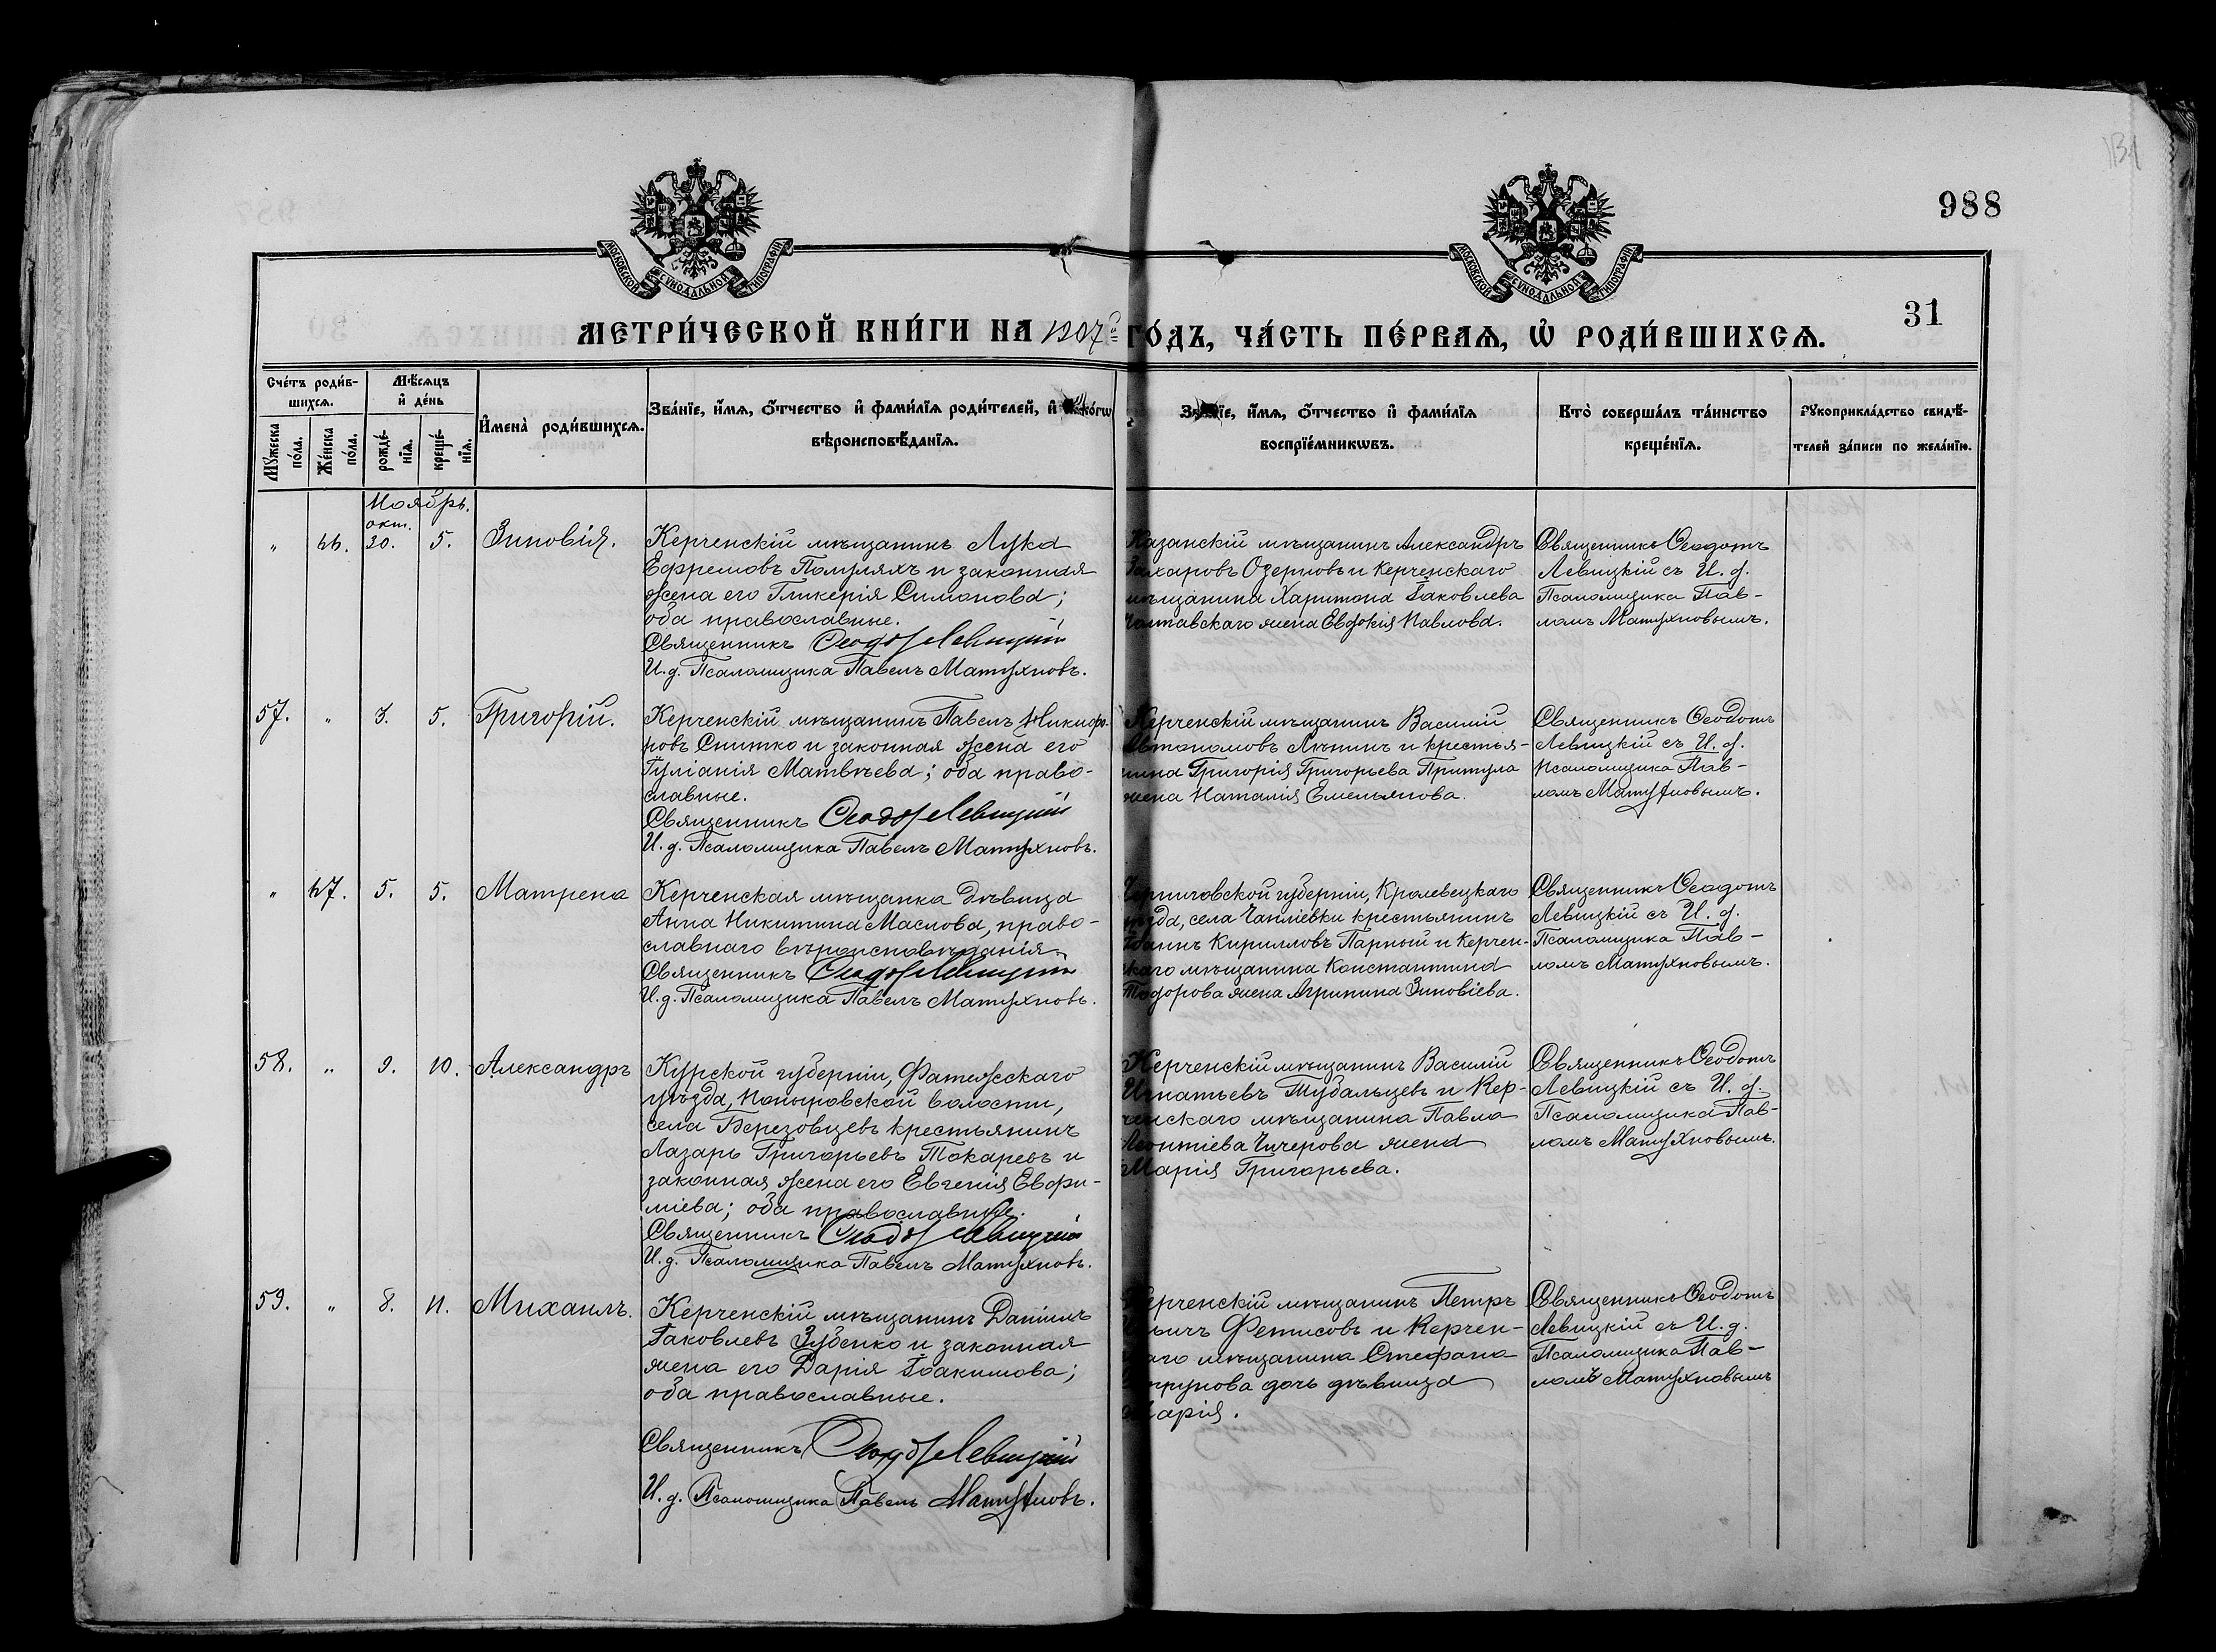 988
31
МОСКОВСКОЙ СѴНОДАЛЬНОЙ ТИПОГРАФІИ
МОСКОВСКОЙ СѴНОДАЛЬНОЙ ТИПОГРАФІИ
МЕТРИ́ЧЕСКОЙ КНИ́ГИ НА 1907й ГО́ДЪ, ЧА́СТЬ ПЕ́РВАѦ, Ѡ РОДИ́ВШИХСѦ.
Сче́тъ роди́в-
шихсѧ.
Мꙋ́жеска
по́ла.
Же́нска
по́ла.
Мѣ́сѧцъ
и де́нь
рожде́-
нїѧ.
креще́-
нїѧ.
Имена̀ роди́вшихсѧ.
Зва́нїе, и́мѧ, о́тчество и фами́лїѧ роди́телей, и како́гѡ
вѣроисповѣ́данїѧ.
Зва́нїе, и́мѧ, о́тчество и фами́лїѧ
воспрїе́мникѡвъ.
Кто̀ соверша́лъ та́инство
креще́нїѧ.
Рꙋкоприкла́дство свидѣ́-
телей за́писи по жела́нїю.
Ноябрь.
окт.
„ 46. 30. 5. Зиновія.
Керченскій мѣщанинъ Лука
Ефремовъ Помуляхъ и законная
жена его Гликерія Симонова;
оба православные.
Священникъ Ѳеодотъ Левицкій
И. д. Псаломщика Павелъ Матухновъ.
Казанскій мѣщанинъ Александръ
Захаровъ Озерновъ и Керченскаго
мѣщанина Харитона Іаковлева
Полтавскаго жена Евдокія Павлова.
Священникъ Ѳеодотъ
Левицкій съ И. д.
Псаломщика Пав-
ломъ Матухновымъ.
57. „ 3. 5. Григорій.
Керченскій мѣщанинъ Павелъ Никифо-
ровъ Снитко и законная жена его
Іуліанія Матвѣева; оба право-
славные.
Священникъ Ѳеодотъ Левицкій
И. д. Псаломщика Павелъ Матухновъ.
Керченскій мѣщанинъ Василій
Автономовъ Лѣтинъ и крестья-
нина Григорія Григорьева Притула
жена Наталія Емельянова.
Священникъ Ѳеодотъ
Левицкій съ И. д.
Псаломщика Пав-
ломъ Матухновымъ.
„ 47. 5. 5. Матрена
Керченская мѣщанка дѣвица
Анна Никитина Маслова, право-
славнаго вѣроисповѣданія.
Священникъ Ѳеодотъ Левицкій
И. д. Псаломщика Павелъ Матухновъ.
Черниговской губерніи, Кролевецкаго
уѣзда, села Чапліевки крестьянинъ
Іоаннъ Кирилловъ Парный и Керчен-
скаго мѣщанина Константина
Тодорова жена Агрипина Зиновіева.
Священникъ Ѳеодотъ
Левицкій съ И. д.
Псаломщика Пав-
ломъ Матухновымъ.
58. „ 9. 10. Александръ
Курской губерніи, Фатежскаго
уѣзда, Поныровской волости,
села Березовцевъ крестьянинъ
Лазарь Григорьевъ Токаревъ и
законная жена его Евгенія Евфи-
міева; оба православные.
Священникъ Ѳеодотъ Левицкій
И. д. Псаломщика Павелъ Матухновъ.
Керченскій мѣщанинъ Василій
Игнатьевъ Тубальцевъ и Кер-
ченскаго мѣщанина Павла
Леонтіева Чичерова жена
Марія Григорьева.
Священникъ Ѳеодотъ
Левицкій съ И. д.
Псаломщика Пав-
ломъ Матухновымъ.
59. „ 8. 11. Михаилъ.
Керченскій мѣщанинъ Даніилъ
Іаковлевъ Зубенко и законная
жена его Дарія Іоакимова;
оба православные.
Священникъ Ѳеодотъ Левицкій
И. д. Псаломщика Павелъ Матухновъ.
Керченскій мѣщанинъ Петръ
Фетисовъ и Керчен-
скаго мѣщанина Стефана
дочь дѣвица
Марія.
Священникъ Ѳеодотъ
Левицкій съ И. д.
Псаломщика Пав-
ломъ Матухновымъ